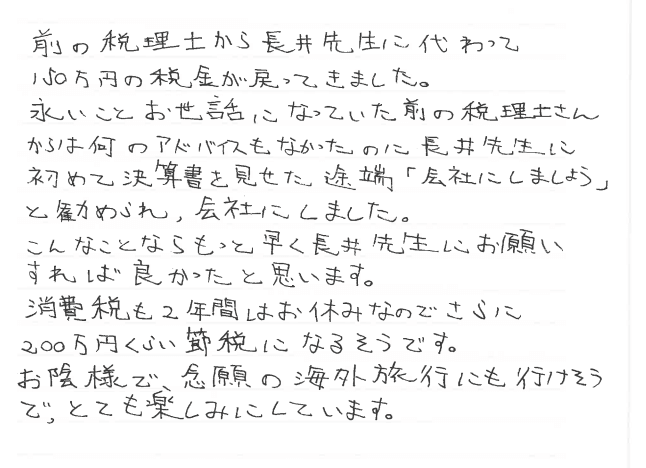 前の税理士から長井先生に代わって
150万円の税金が戻ってきました。
永いことお世話になっていた前の税理士さん
からは何のアドバイスもなかったのに長井先生に
初めて決算書を見せた途端「会社にしましよう」
と勧められ,会社にしました。
こんなことならもっと早く長井先生にお願い
すれば良かったと思います。
消費税も2年間はお休みなのでさらに
200万円くらい節税になるそうです。
お陰様で、念願の海外旅行にも行けそう
で,とても楽しみにしています。